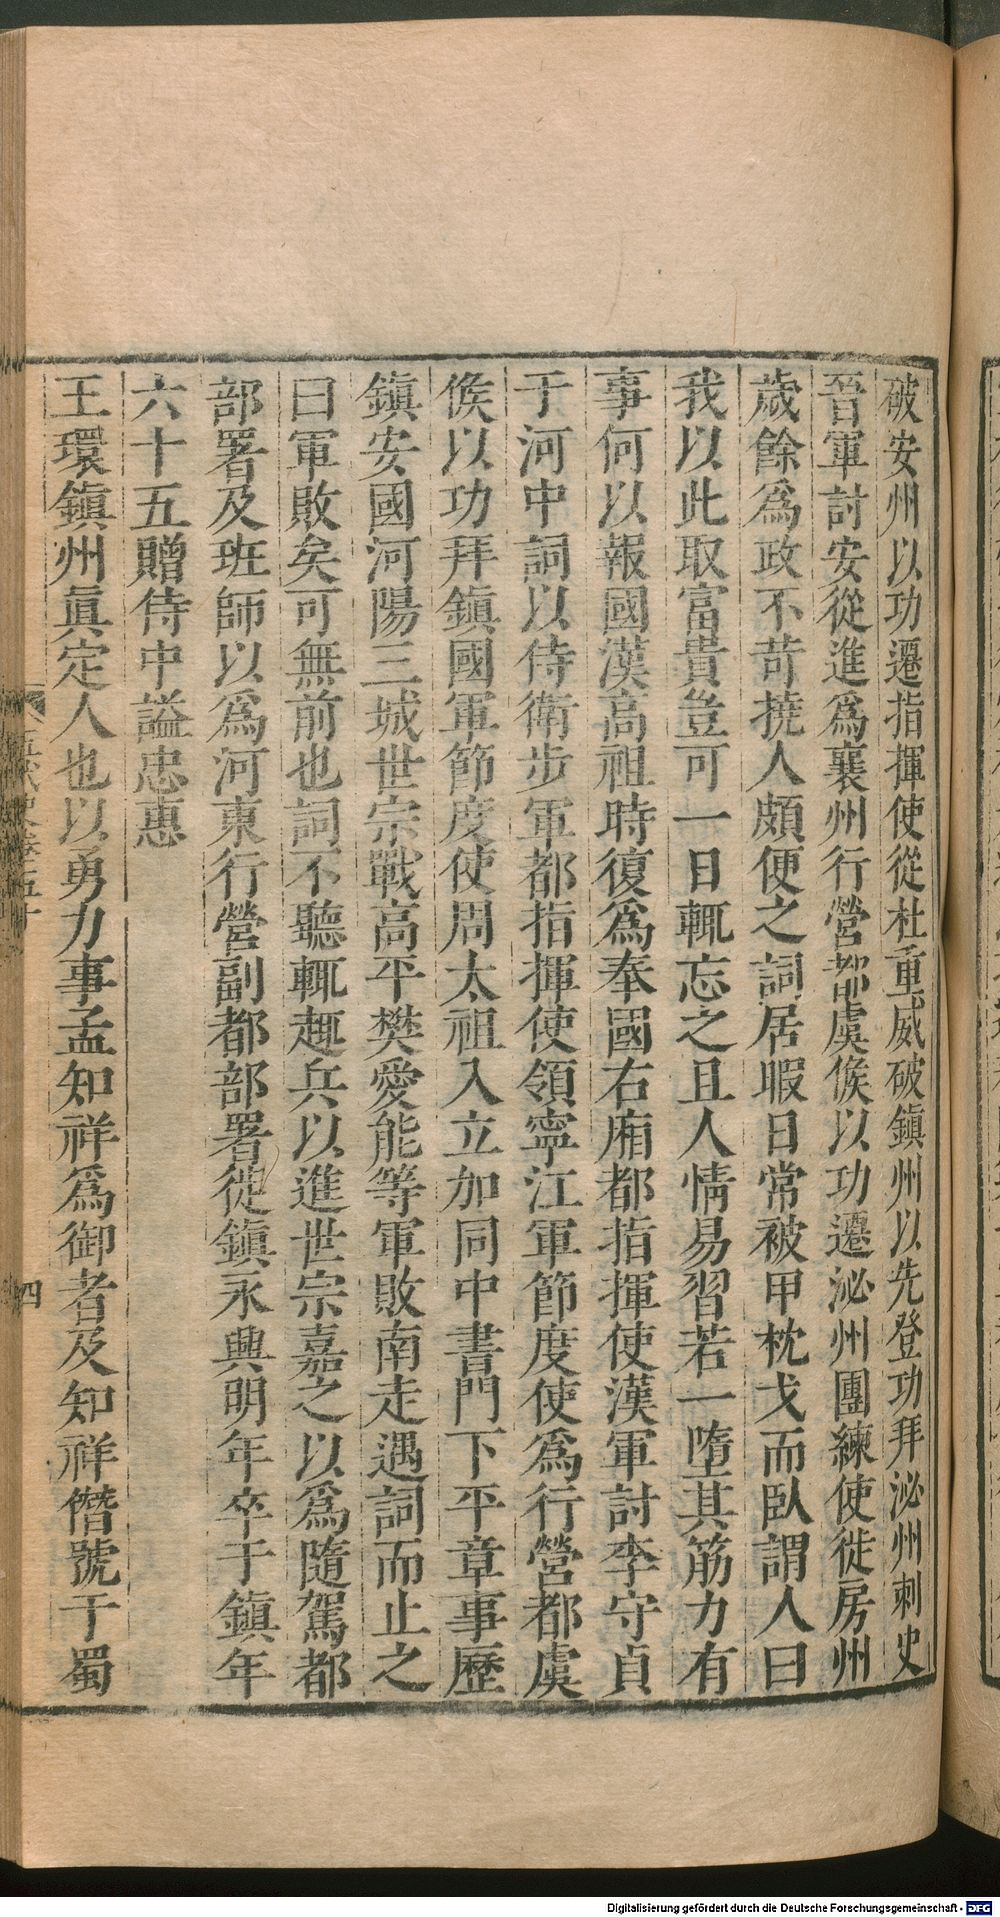 破安州以功遷指揮使從杜重威破鎮州以先登功拜泌州刺史
晉軍討安從進爲襄州行營都虞候以功遷泌州團練使徙房州
歲餘爲政不苛撓人頗便之詞居暇日常被甲枕戈而臥謂人曰
我以此取富貴豈可一日輒忘之且人情易習若一墮其筋力有
事何以報國漢高祖時復爲奉國右廂都指揮使漢軍討李守貞
于河中詞以侍衛步軍都指揮使領寧江軍節度使爲行營都虞
候以功拜鎮國軍節度使周太祖入立加同中書門下平章事歷
鎮安國河陽三城世宗戰高平樊愛能等軍敗南走遇詞而止之
曰軍敗矣可無前也詞不聽輒趣兵以進世宗嘉之以爲隨駕都
部署及班師以爲河東行營副都部署徙鎮永興明年卒于鎮年
六十五贈侍中謚忠惠
王環鎮州眞定人也以勇力事孟知祥爲御者及知祥僭號于蜀
五代史卷五十
四
Digitalisierung gefördert durch die Deutsche Forschungsgemeinschaft - DFG